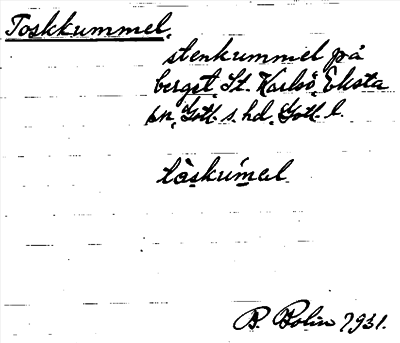 Toskkummel,
stenkummel på
berget, St. Karlsö, Eksta
sn, Gotl. s. hd, Gotl. l.
tàskúmal
B. Bolin 1931.